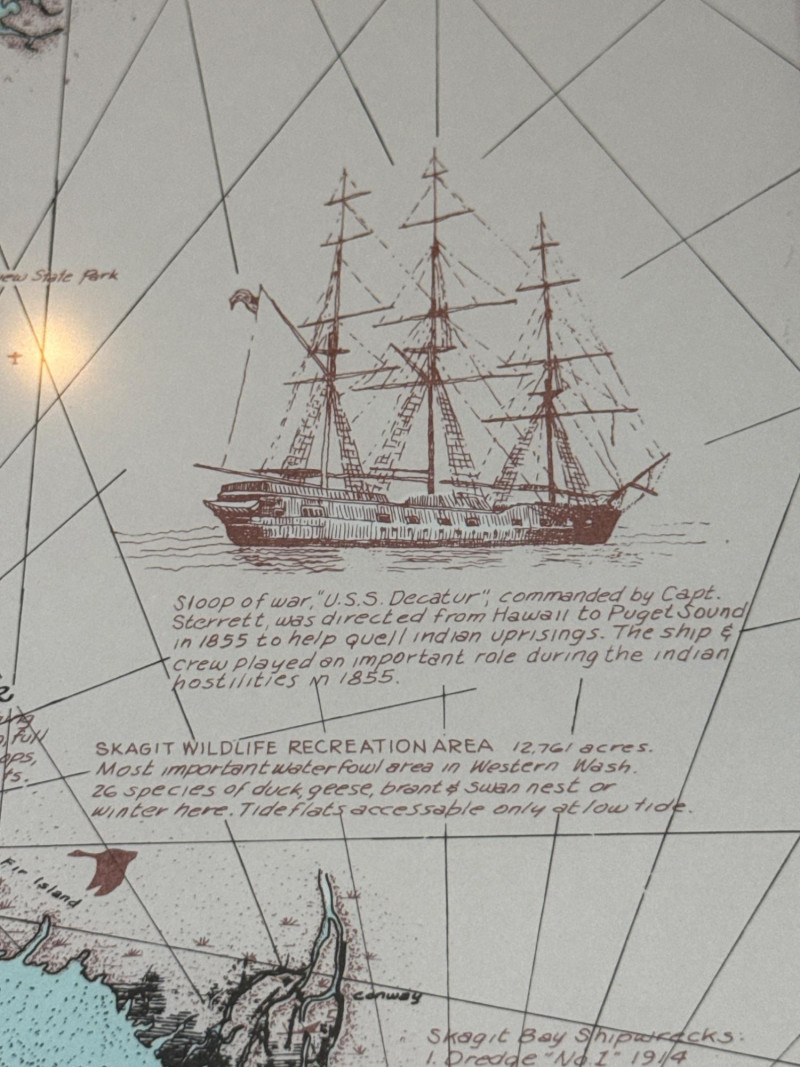 State Park
Sloop of war, "U.S.S. Decatur", commanded by Capt.
Sterrett, was directed from Hawaii to Puget Sound
in 1855 to help quell indian uprisings. The ship &
crew played an important role during the indian
hostilities in 1855.
SKAGIT WILDLIFE RECREATION AREA 12,761 acres.
Most important waterfowl area in Western Wash.
26 species of duck, geese, brant & swan nest or
winter here. Tideflats accessable only at low tide.
Fir Island
conway
Skagit Bay Shipwrecks:
1. Dredge "No.1" 1914